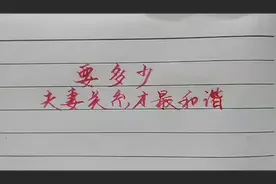 要多少
夫妻关系,才最和谐